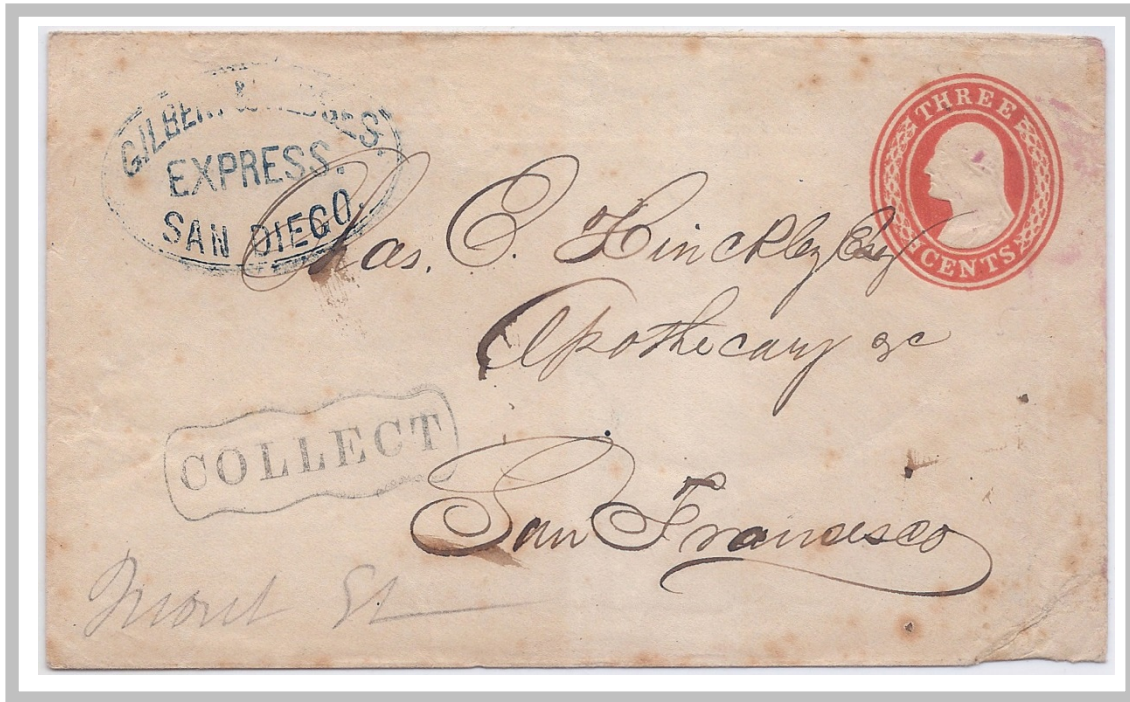 GILBERT & HEDGES'
EXPRESS.
SAN DIEGO.
THREE
CENTS
Chas. E. Hinckley Esq
Apothecary &c
COLLECT
San Francisco
Mont St